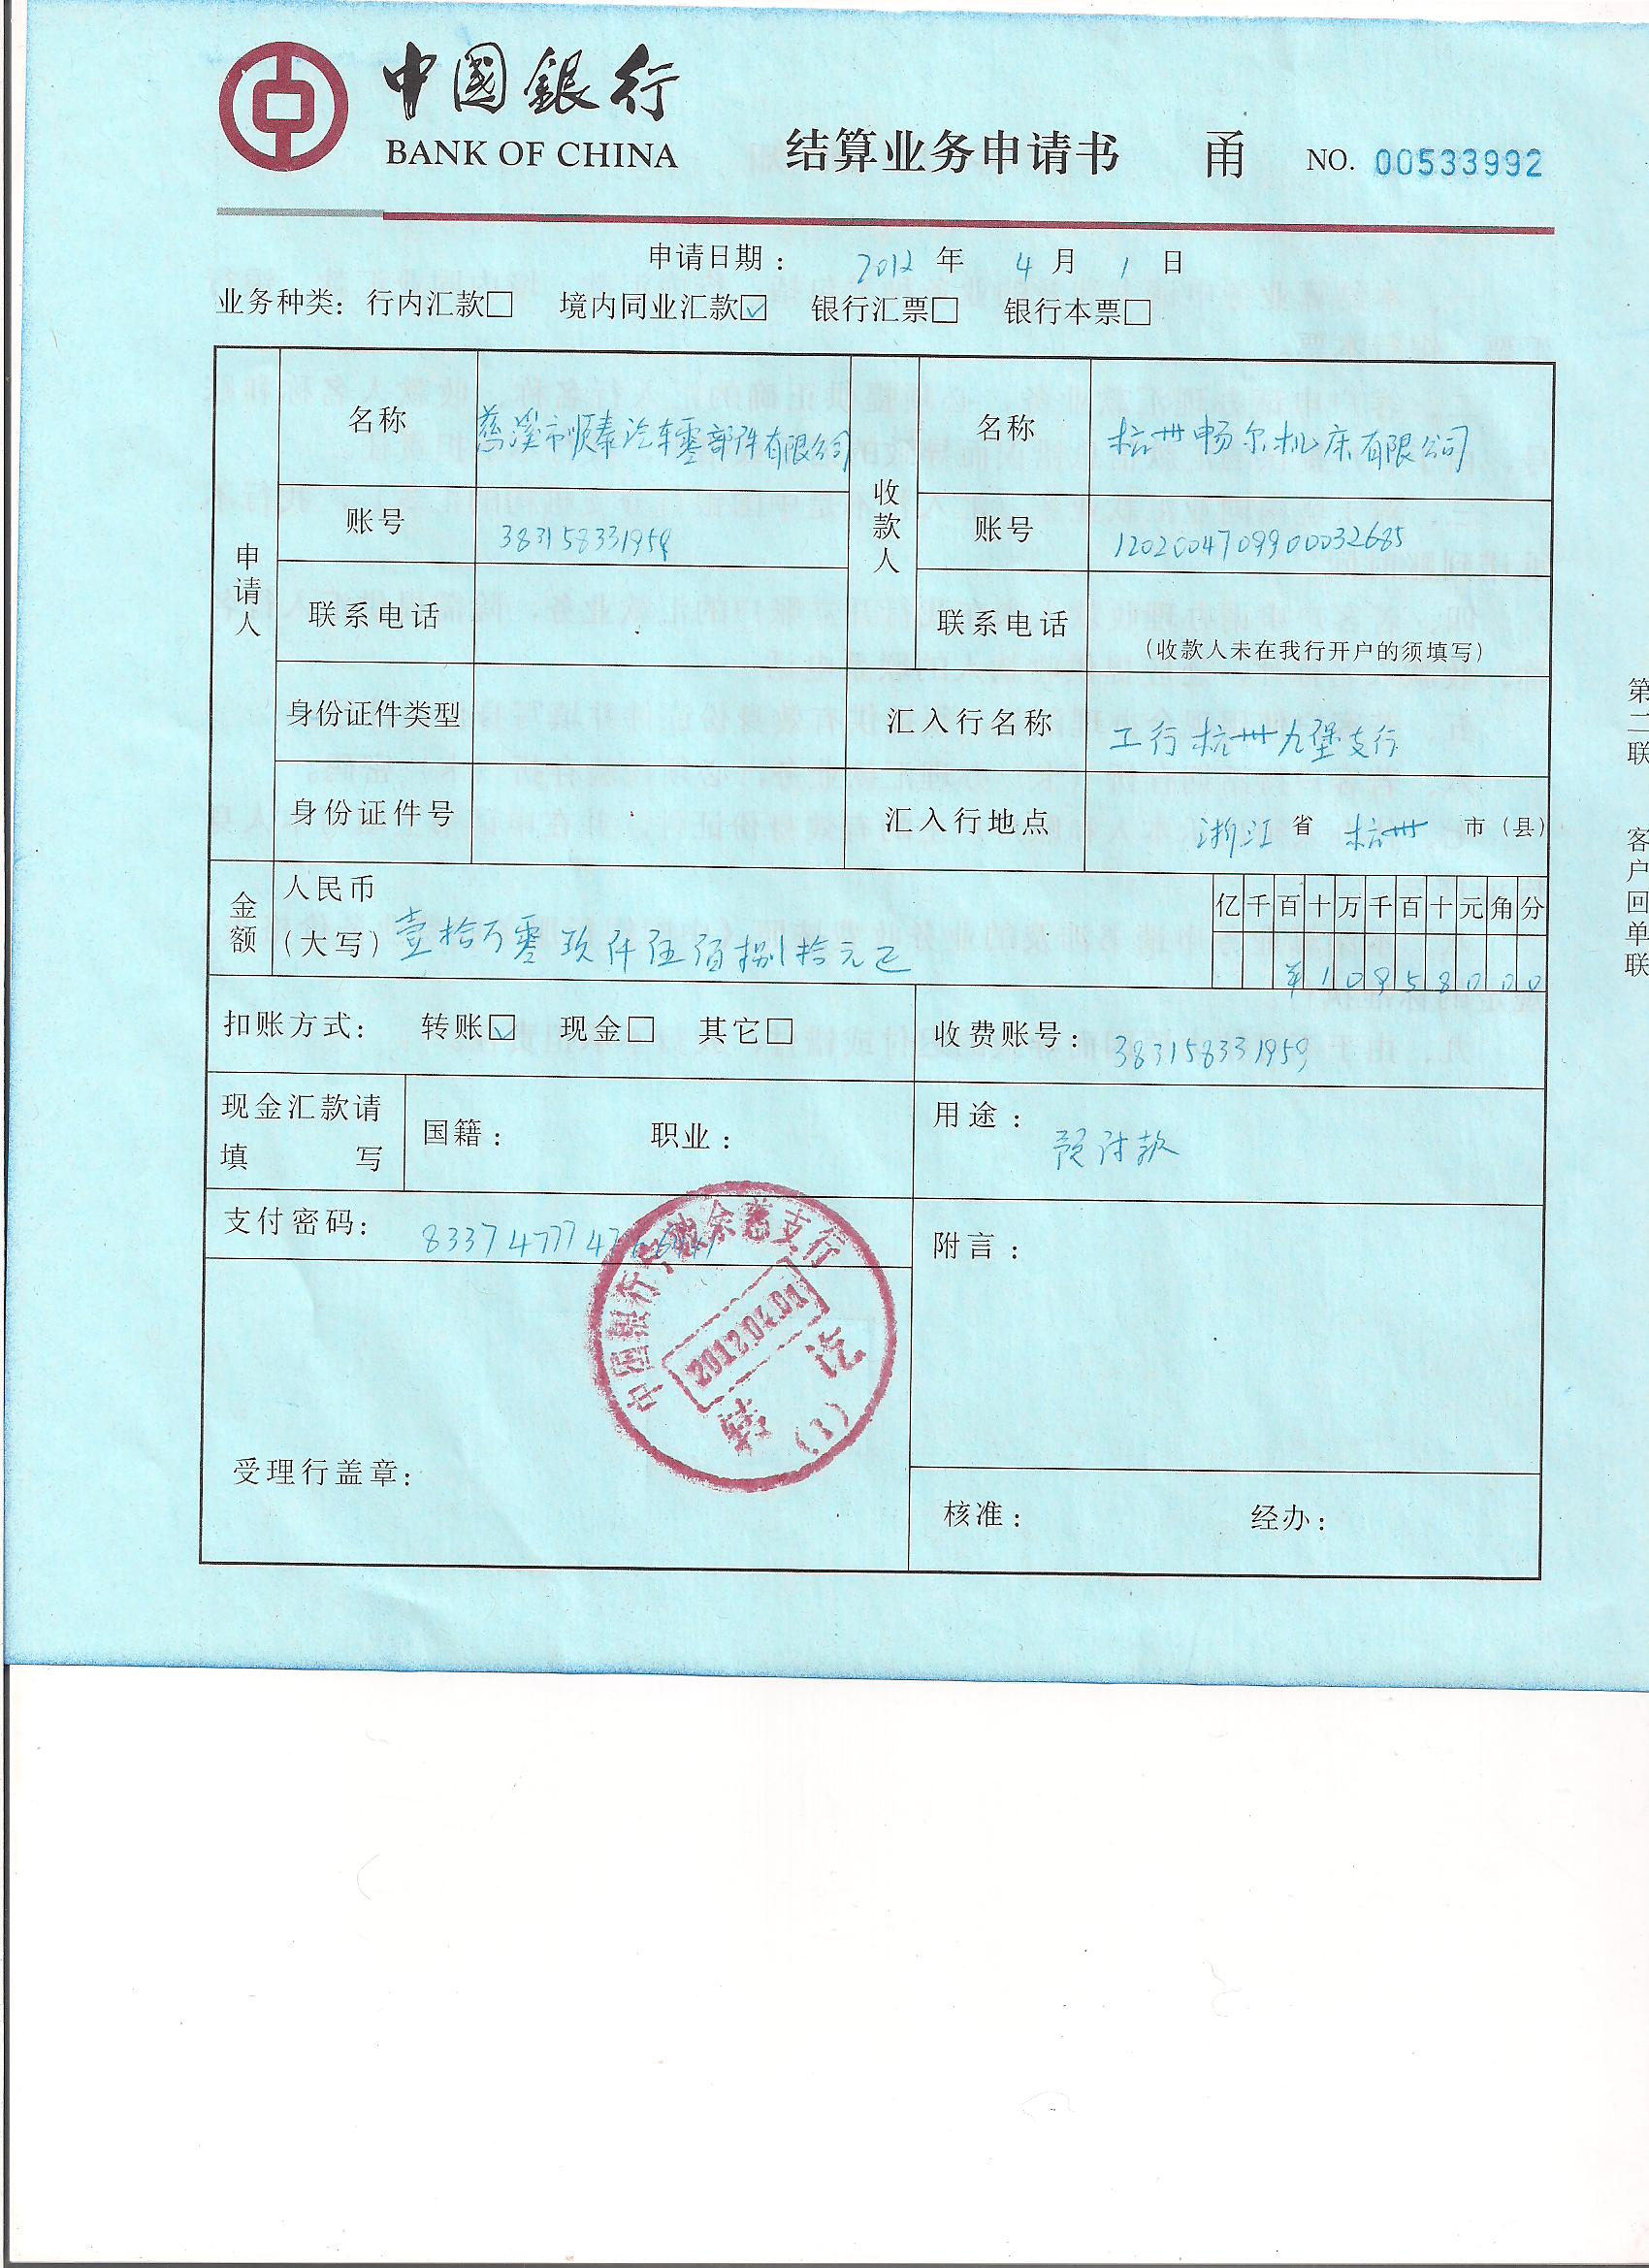 中國銀行
BANK OF CHINA
结算业务申请书 甬 NO. 00533992
申请日期： 2012 年 4 月 1 日
业务种类: 行内汇款□ 境内同业汇款☑ 银行汇票□ 银行本票□
申请人
名称 慈溪市顺泰汽车零部件有限公司
账号 383158331959
联系电话
身份证件类型
身份证件号
收款人
名称 杭州畅尔机床有限公司
账号 1202004709900032685
联系电话 （收款人未在我行开户的须填写）
汇入行名称 工行杭州九堡支行
汇入行地点 浙江 省 杭州 市（县）
金额 人民币
（大写） 壹拾万零玖仟伍佰捌拾元正
亿 千 百 十 万 千 百 十 元 角 分
¥ 1 0 9 5 8 0 0 0
扣账方式: 转账☑ 现金□ 其它□
收费账号: 383158331959
现金汇款请
填 写
国籍: 职业:
用途: 预付款
支付密码: 833747774
附言:
中国银行宁波余慈支行
2012.04.01
转讫
(1)
受理行盖章:
核准: 经办:
第二联 客户回单联